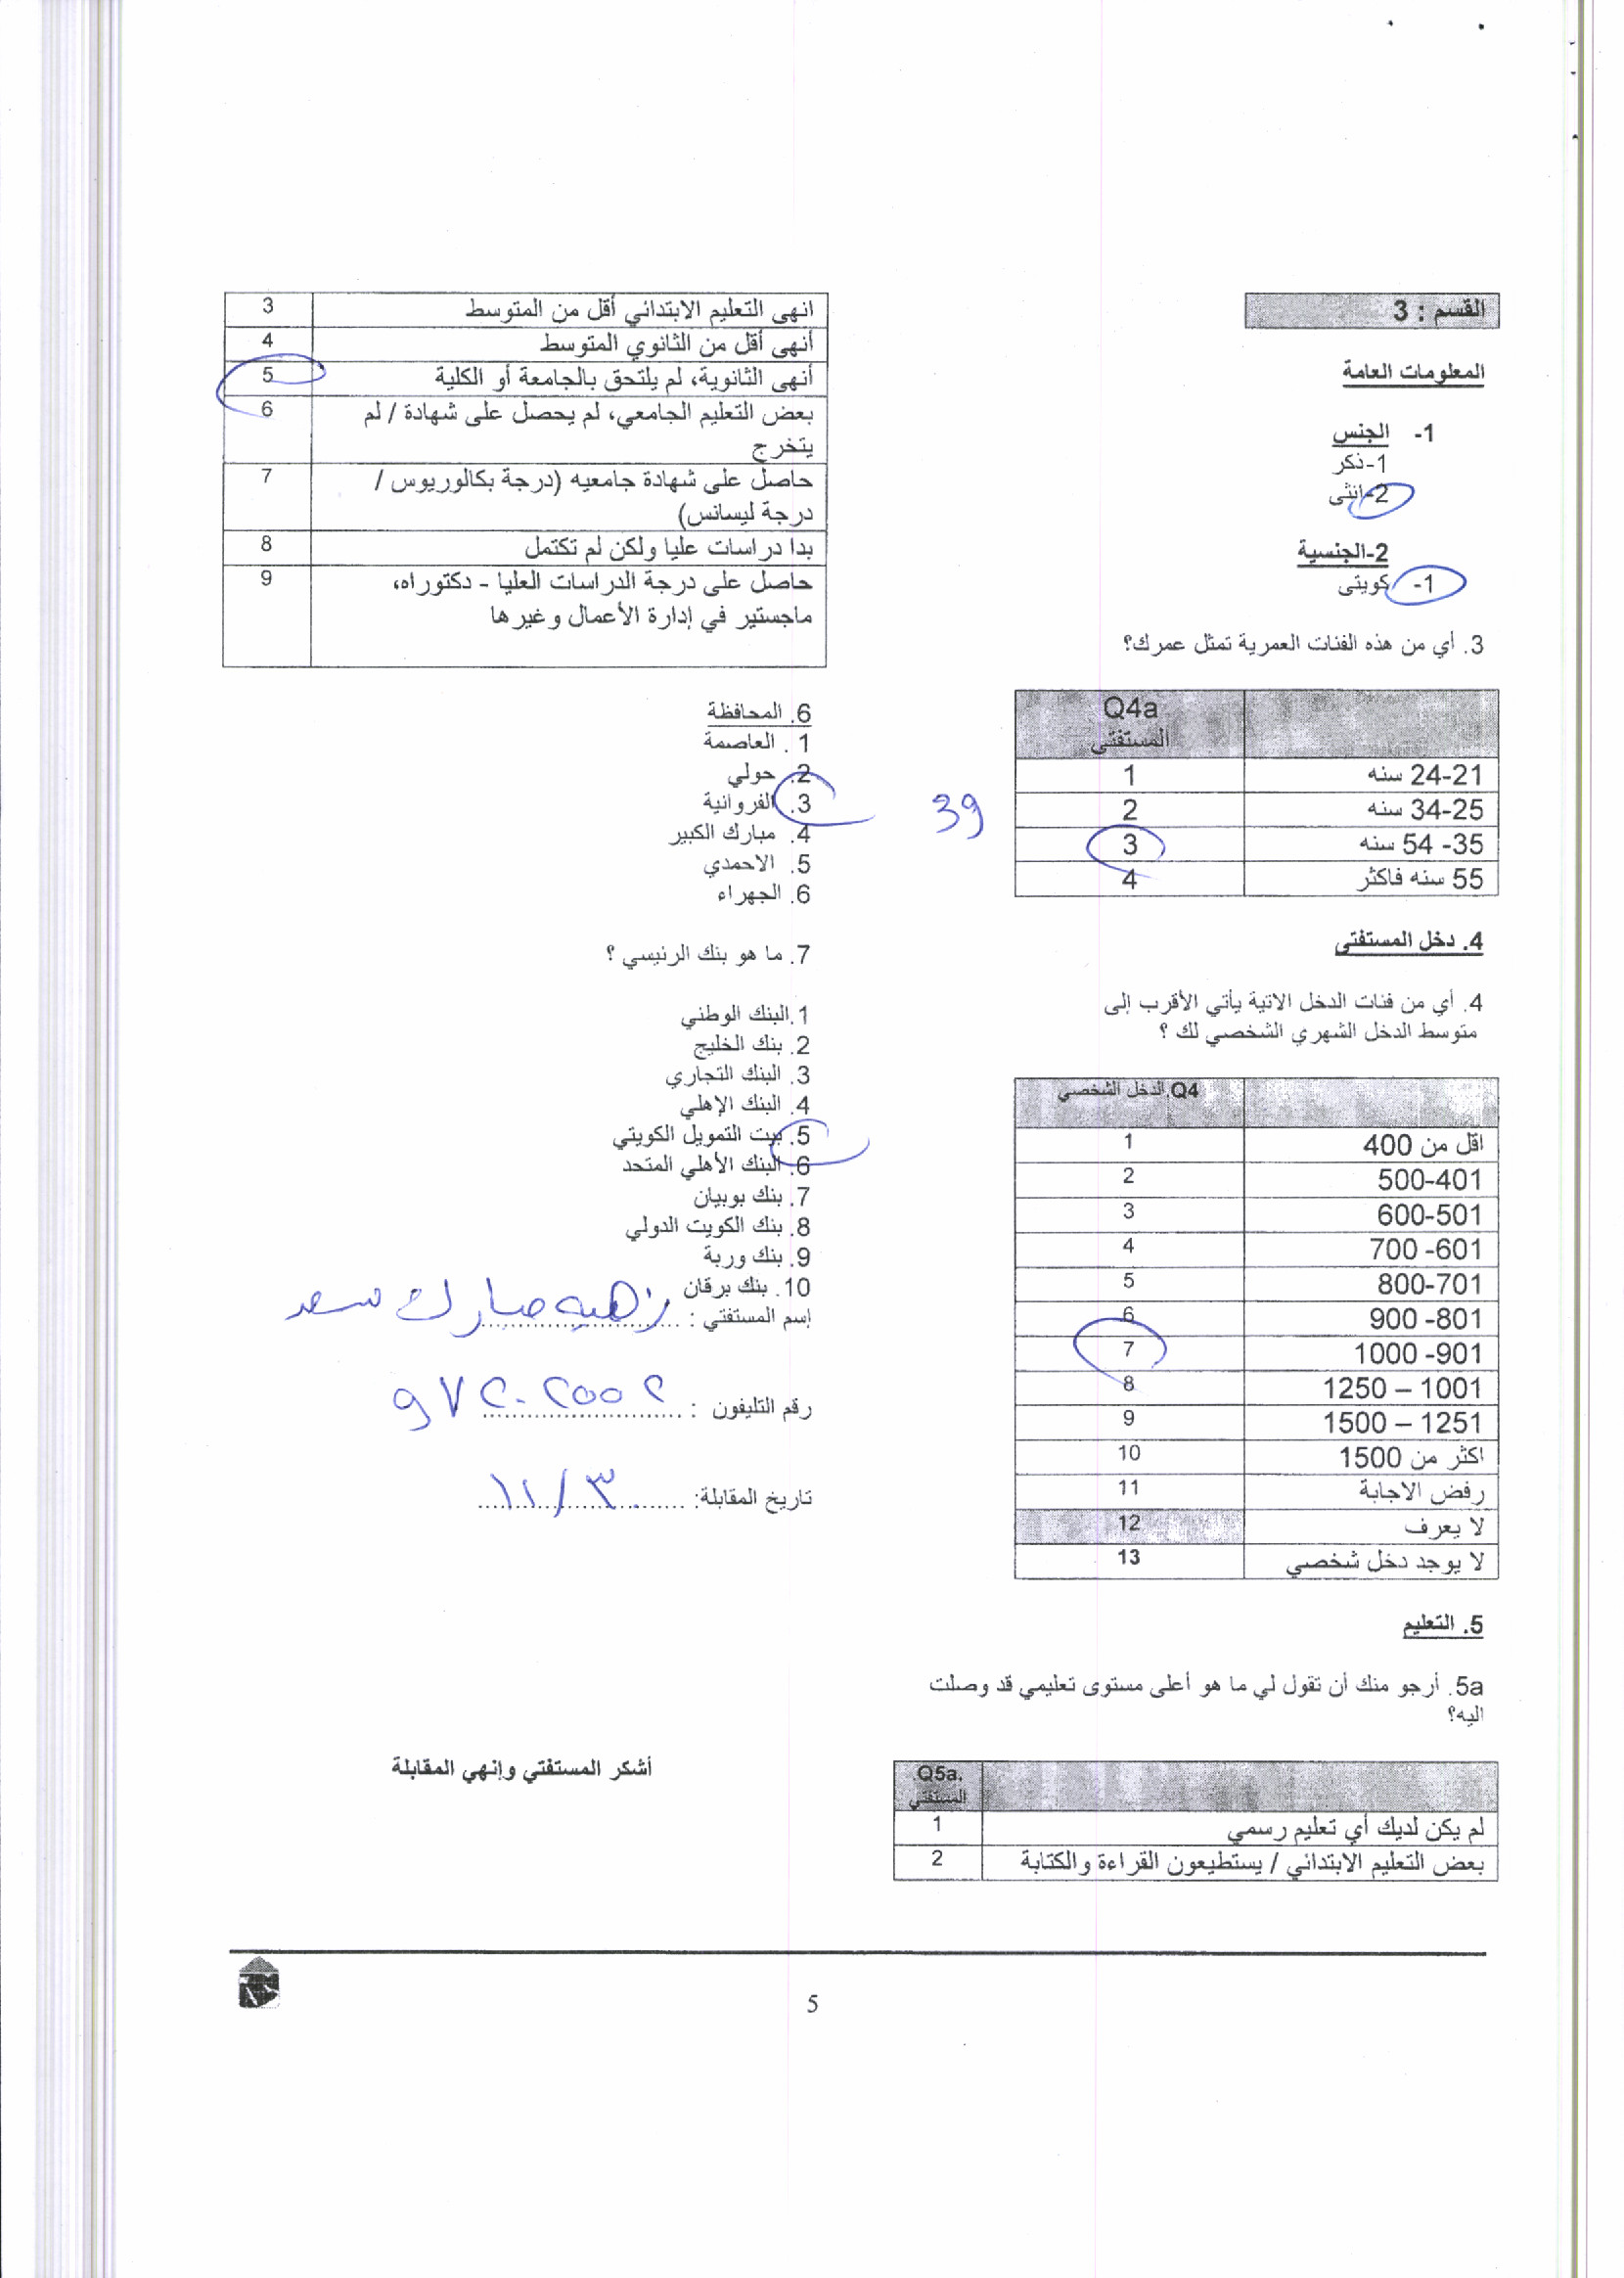 القسم : 3
المعلومات العامة
1- الجنس
1-ذكر
2-انثى
2-الجنسية
1- كويتى
3. أي من هذه الفئات العمرية تمثل عمرك؟
Q4a
المستفتى
24-21 سنه 1
34-25 سنه 2
35- 54 سنه 3
55 سنه فاكثر 4
39
4. دخل المستفتى
4. أي من فئات الدخل الاتية يأتي الأقرب إلى
متوسط الدخل الشهري الشخصي لك ؟
Q4.الدخل الشخصي
اقل من 400 1
500-401 2
600-501 3
700 -601 4
800-701 5
900 -801 6
1000 -901 7
1250 – 1001 8
1500 – 1251 9
اكثر من 1500 10
رفض الاجابة 11
لا يعرف 12
لا يوجد دخل شخصي 13
5. التعليم
5a. أرجو منك أن تقول لي ما هو أعلى مستوى تعليمي قد وصلت
اليه؟
Q5a.
المستفتي
لم يكن لديك أي تعليم رسمي 1
بعض التعليم الابتدائي / يستطيعون القراءة والكتابة 2
انهى التعليم الابتدائي أقل من المتوسط 3
أنهى أقل من الثانوي المتوسط 4
أنهى الثانوية، لم يلتحق بالجامعة أو الكلية 5
بعض التعليم الجامعي، لم يحصل على شهادة / لم 6
يتخرج
حاصل على شهادة جامعيه (درجة بكالوريوس / 7
درجة ليسانس)
بدا دراسات عليا ولكن لم تكتمل 8
حاصل على درجة الدراسات العليا - دكتوراه، 9
ماجستير في إدارة الأعمال وغيرها
6. المحافظة
1 . العاصمة
2. حولي
3. الفروانية
4. مبارك الكبير
5. الاحمدي
6. الجهراء
7. ما هو بنك الرئيسي ؟
1.البنك الوطني
2. بنك الخليج
3. البنك التجاري
4. البنك الإهلي
5. بيت التمويل الكويتي
6. البنك الأهلي المتحد
7. بنك بوبيان
8. بنك الكويت الدولي
9. بنك وربة
10. بنك برقان
إسم المستفتي : مبارك سعد
رقم التليفون : ٩٧٢٠٢٥٥٢
تاريخ المقابلة: ١١/٣
أشكر المستفتي وإنهي المقابلة
5